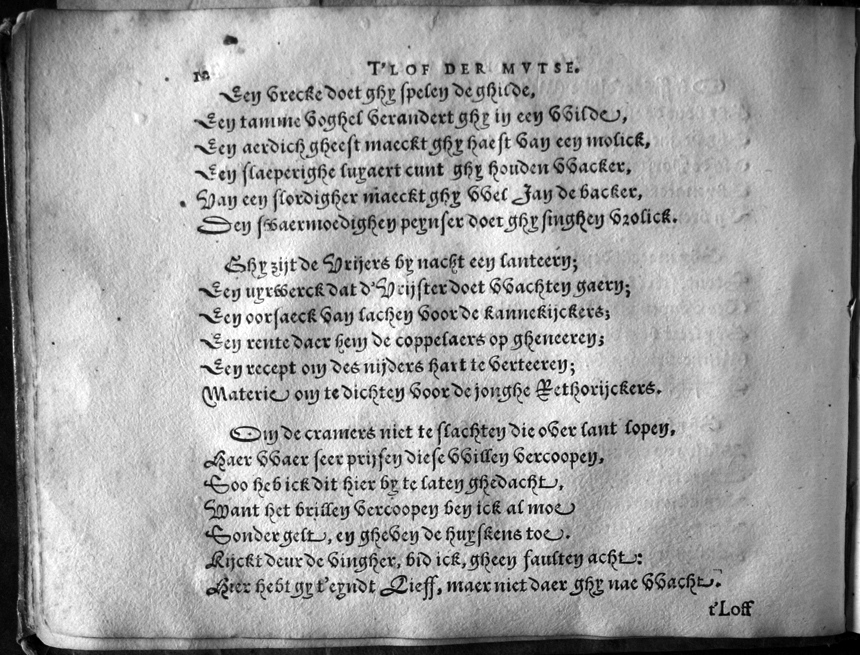 10 T'LOF DER MVTSE.
Een vrecke doet ghy spelen de ghilde,
Een tamme voghel verandert ghy in een wilde,
Een aerdich gheest maeckt ghy haest van een molick,
Een slaeperighe luyaert cunt ghy houden wacker,
Van een slordigher maeckt ghy wel Jan de backer,
Den swaermoedighen peynser doet ghy singhen vrolick.
Ghy zijt de Vrijers by nacht een lanteern;
Een uyrwerck dat d'Vrijster doet wachten gaern;
Een oorsaeck van lachen voor de kannekijckers;
Een rente daer hem de coppelaers op gheneeren;
Een recept om des nijders hart te verteeren;
Materie om te dichten voor de jonghe Rethorijckers.
Om de cramers niet te slachten die over lant lopen,
Haer waer seer prijsen diese willen vercoopen,
Soo heb ick dit hier by te laten ghedacht,
Want het brillen vercoopen ben ick al moe
Sonder gelt, en gheven de huyskens toe.
Kijckt deur de vingher, bid ick, gheen fauten acht:
Hier hebt gy t'eyndt Lieff, maer niet daer ghy nae wacht.
t'Loff